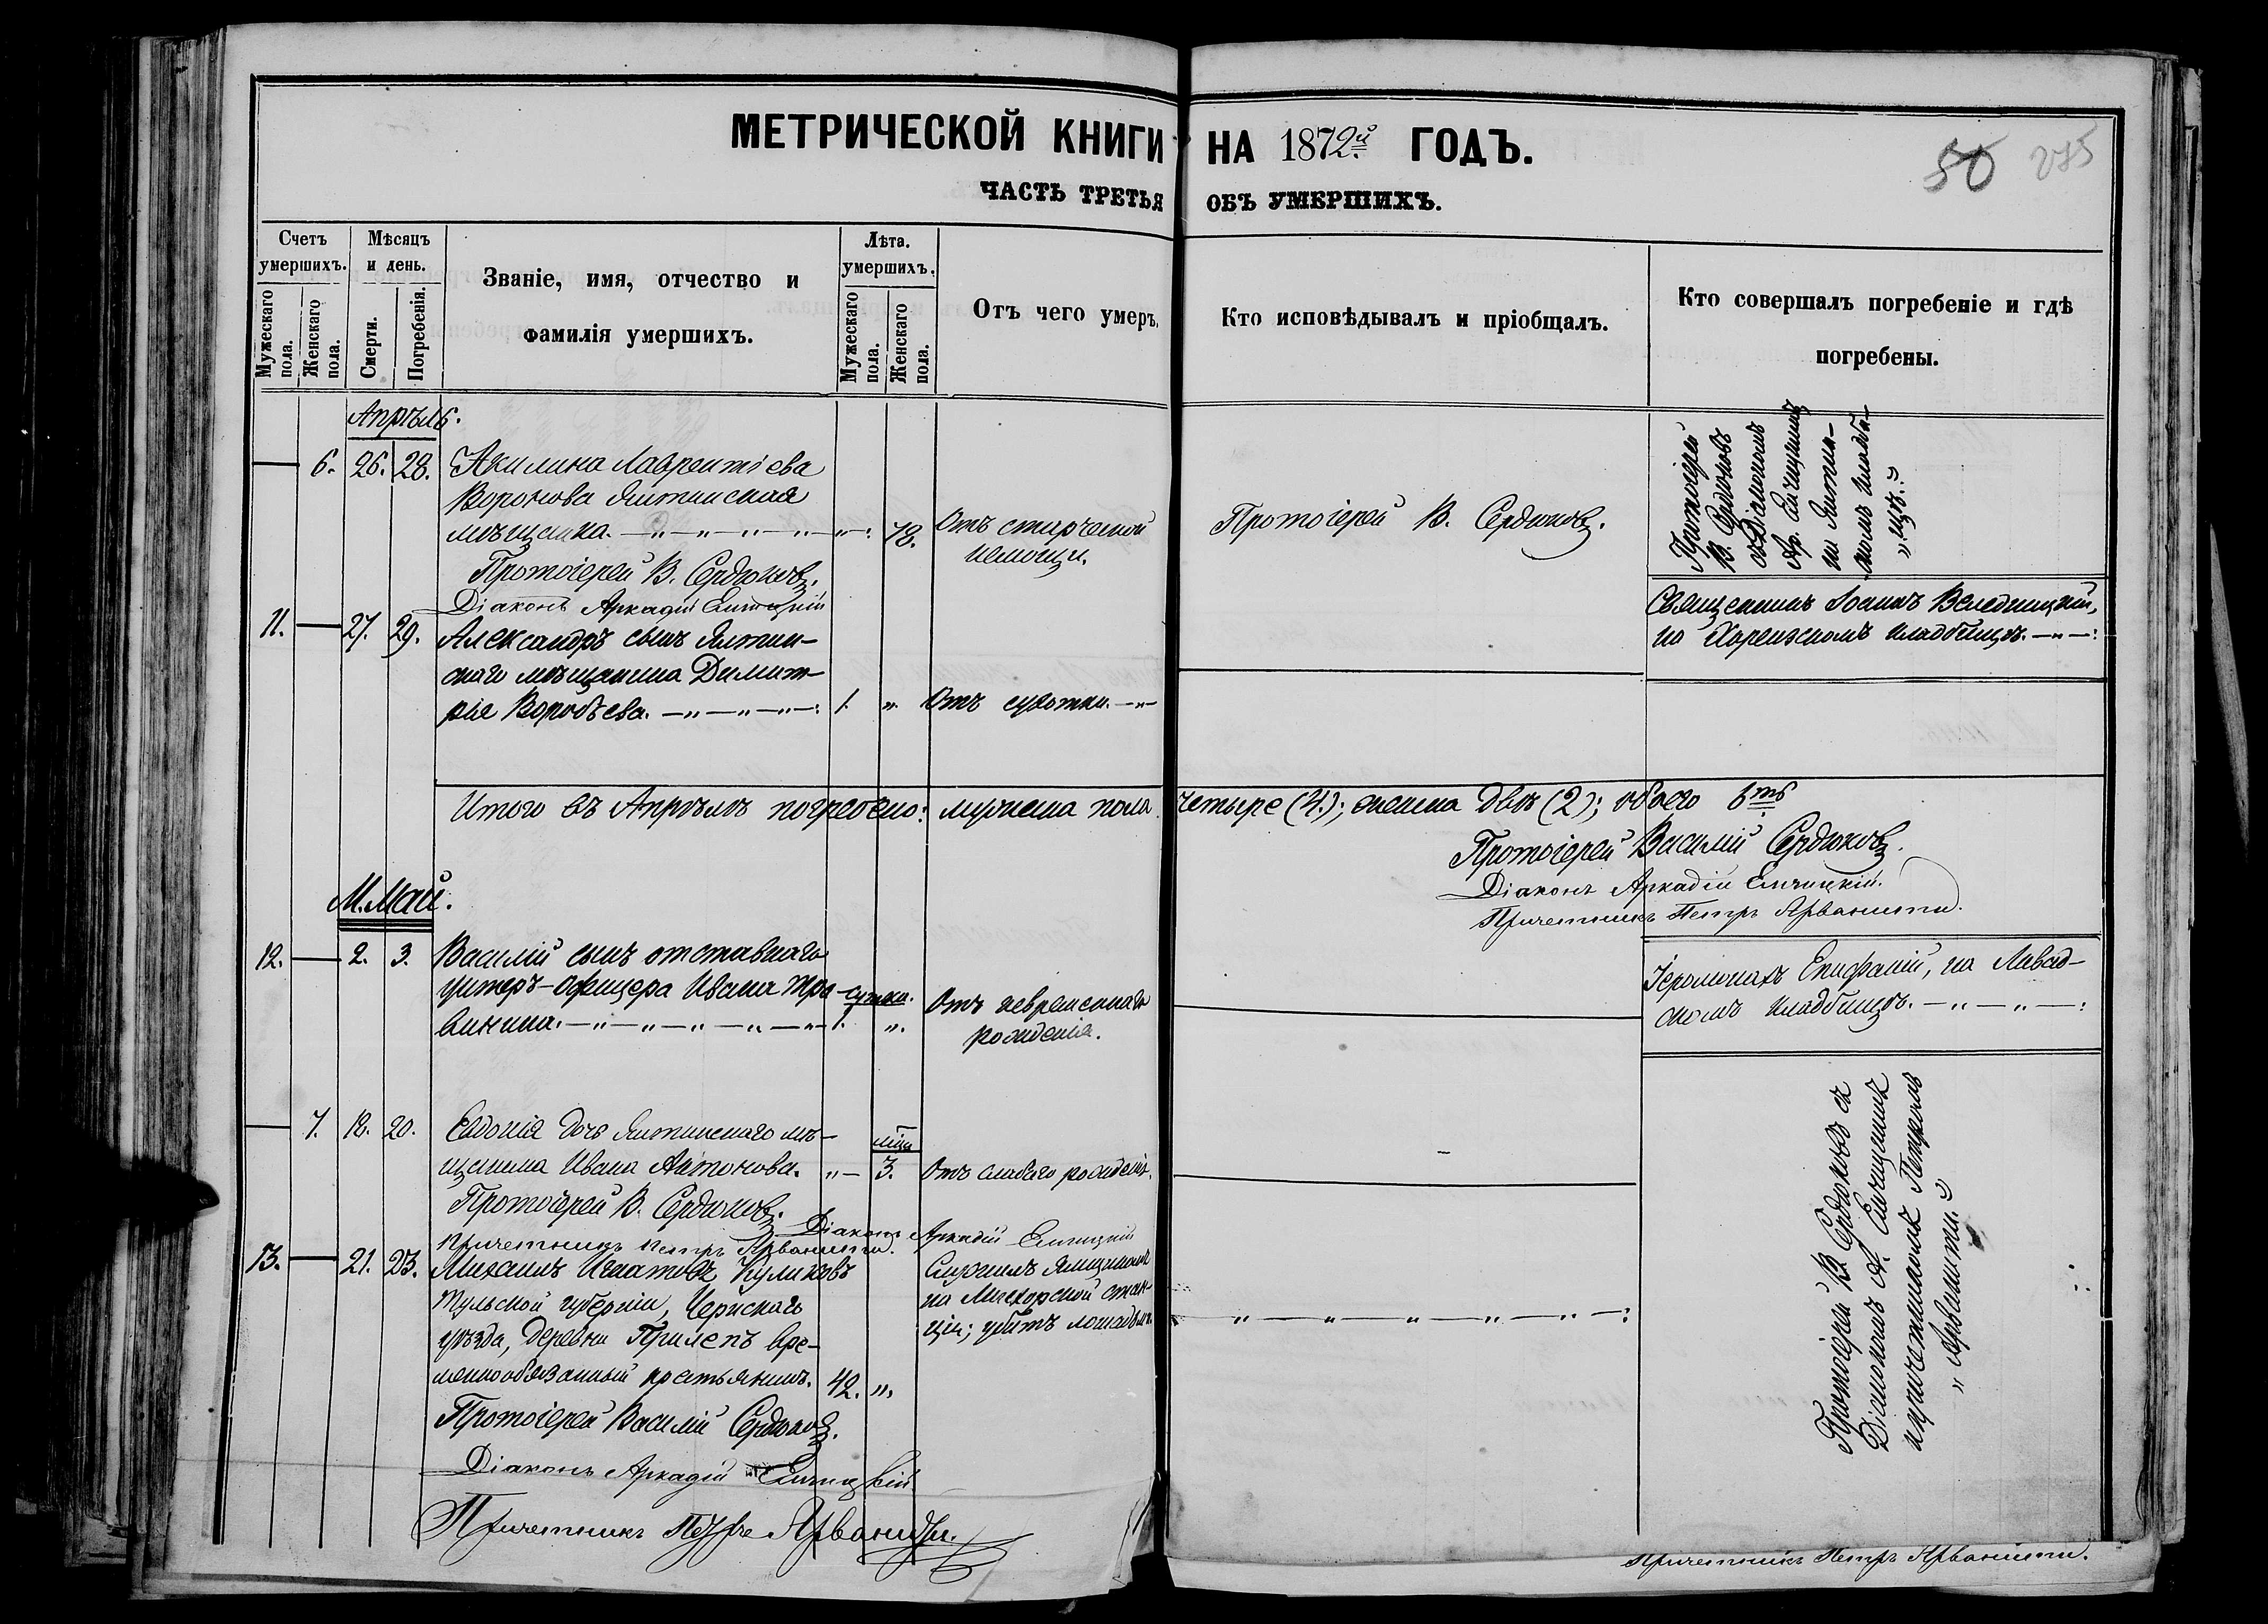 МЕТРИЧЕСКОЙ КНИГИ НА 1872й ГОДЪ.
50 285
ЧАСТЬ ТРЕТЬЯ ОБЪ УМЕРШИХЪ.
Счетъ умершихъ.
Мужескаго пола.
Женскаго пола.
Мѣсяцъ и день.
Смерти.
Погребенія.
Званіе, имя, отчество и
фамилія умершихъ.
Лѣта.
умершихъ.
Мужескаго пола.
Женскаго пола.
Отъ чего умеръ.
Кто исповѣдывалъ и пріобщалъ.
Кто совершалъ погребеніе и гдѣ
погребены.
Апрѣль.
— 6. 26. 28. Акилина Лаврентіева
Воронова Ялтинская
мѣщанка. —„—„—„—„—: 78.
Отъ старческой
немощи.
Протоіерей В. Сердюковъ.
Протоіерей
В. Сердюковъ
съ Діакономъ
Ар.
на Ялтин-
скомъ кладби-
„щѣ.„
Протоіерей В. Сердюковъ.
Діаконъ Аркадій
11. — 27. 29. Александръ сынъ Ялтин-
скаго мѣщанина Димит-
рія Воробьева. —„—„—„—: 1. „ Отъ сухотки. —„—
Священникъ Іоаннъ
на кладбищѣ. —„—:
Итого въ Апрѣлѣ погребено: мужеска пола четыре (4.); женска двѣ (2); обоего 6ть
Протоіерей Василій Сердюковъ.
Діаконъ Аркадій
Причетникъ Петръ Арванити.
М. Май.
12. — 2. 3. Василій сынъ отставнаго
унтеръ-офицера Ивана Тра-
винина. —„—„—„—„—„— сутки. 1. „.
Отъ невременнаго
рожденія.
Іеромонахъ Епифаній, на Ливад-
скомъ кладбищѣ. —„—„—:
— 7. 18. 20. Евдокія дочь Ялтинскаго мѣ-
щанина Ивана Антонова. „— мѣц. 3. Отъ слабаго рожденія.
Протоіерей В. Сердюковъ.
Діаконъ Аркадій
Причетникъ Петръ Арванити.
13. — 21. 23. Михаилъ Игнатовъ Куликовъ
Тульской губерніи, Чернскаго
уѣзда, деревни Прилепъ вре-
меннообязанный крестьянинъ. 42. „,
Служилъ ямщикомъ
на Мисхорской стан-
ціи; убитъ лошадьми.
„—„—„—„—„—:
Протоіерей В. Сердюковъ съ
Діакономъ А.
и причетникомъ Петромъ
„ Арванити.„
Протоіерей Василій Сердюковъ.
Діаконъ Аркадій
Причетникъ Петръ Арванити.
Причетникъ Петръ Арванити.